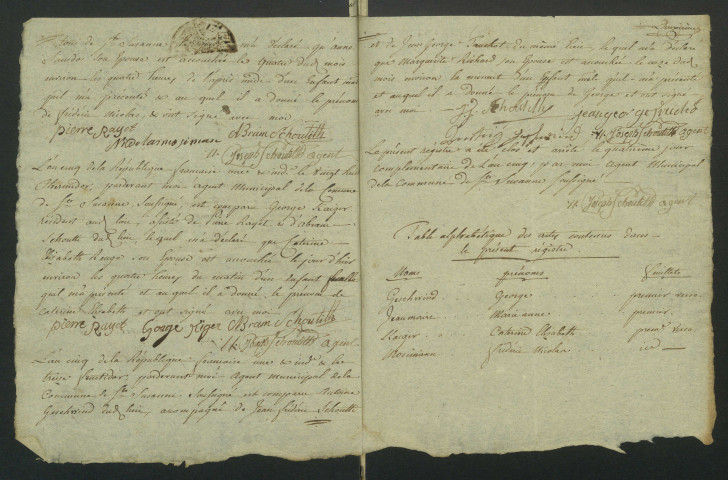 de Ste Suzanne lequel m'a déclaré que anne
son Epouse est accouchée le quatre dud. mois
environ les quatre heures de l'après midi d'un Enfant mâle
quil m'a présenté et au quel il a donné le prénom
de fridéric Nicolas & ont signé avec moi
pierre Rayot
Abram Schoutelle
Joseph Schoutelle agent
L'an cinq de la République française une & ind. le vingt huit
thermidor, pardevant moi agent Municipal de la Commune
de Ste Suzanne soussigné, est comparu George Kaiger
résidant au lieu, assisté de Pierre Rayot & d'abram
Schoutte du lieu, lequel m'a déclaré que Catrine
Elisabette son Epouse est accouchée le jour d'hier
environ les quatre heures du matin d'un enfant femelle
quil m'a présenté et au quel il a donné le prénom de
Caterine Elisabette et ont signé avec moi
pierre Rayot George Abram Schoutelle
Joseph Schoutelle agent
L'an cinq de la République française une & ind. le
treize fructidor, pardevant moi agent municipal de la
Commune de Ste Suzanne soussigné est comparu
Geschwind du lieu, accompagné de Jean fridéric Schoutte
et de Jean George du même lieu, lequel m'a déclaré
que Marguerite Richard son Epouse est accouchée le onze dud.
mois environ la minuit d'un Enfant mâle quil m'a présenté
et auquel il a donné le prénom de George et ont signé
avec moi
Joseph Schoutelle agent
Le présent registre a été clos et arrêté le quatrième jour
complémentaire de l'an cinq par moi agent Municipal
de la Commune de Ste Suzanne soussigné
Joseph Schoutelle agent
Table alphabétique des actes contenus dans
le présent registre
Noms prénoms feuillets
Geschwind George premier verso
Jeanmaire Marie anne premier
Kaiger Catrine Elisabette premr verso
Mosimann fridéric Nicolas